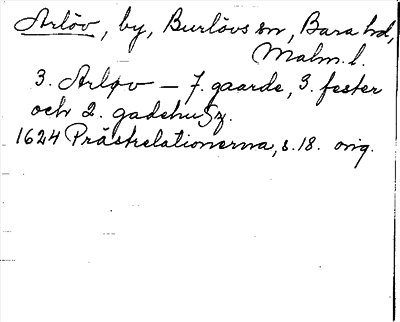 Arlöv, by, Burlövs sn, Bara hd,
Malm. l.
3. Arløv — 7. gaarde, 3. fester
och 2. gadehusz.
1624 Prästrelationerna, s. 18. orig.